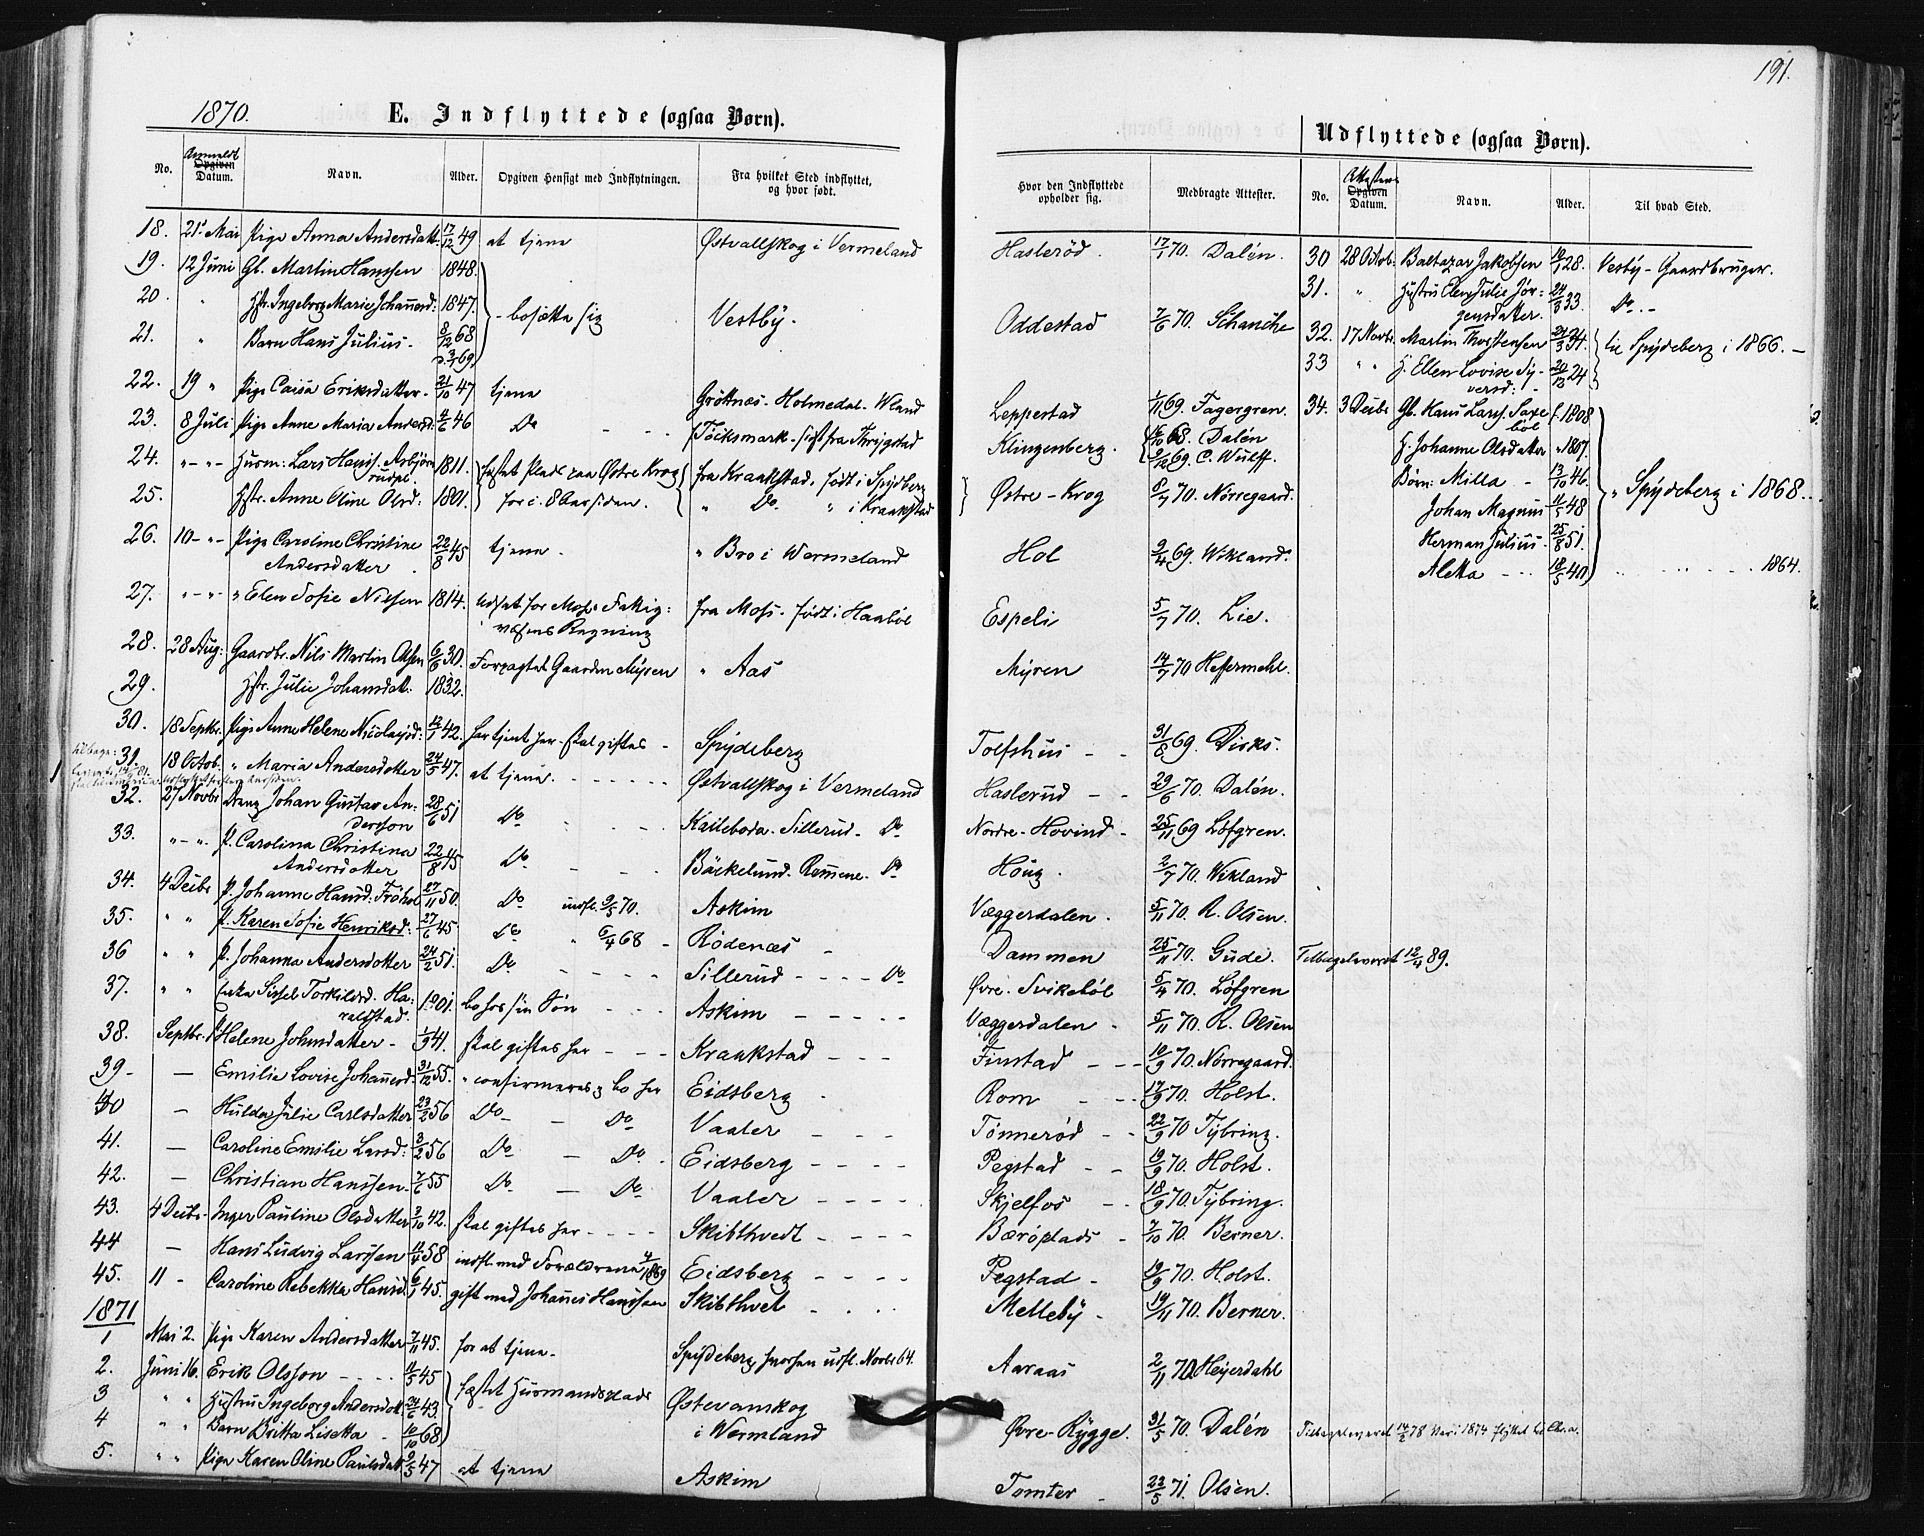 1870.
E. Indflyttede (ogsaa Børn).
No. Anmeldt Opgiven Datum. Navn. Alder. Opgiven Hensigt med Indflytningen. Fra hvilket Sted indflyttet, og hvor født.
18. 21. Mai Pige Anna Andersdatt. 17/12 49 at tjene Østvallskog i Vermeland
19. 12 Juni Gb. Martin Hanssen 1848.
20. " Hstr. Ingeborg Marie Johannesd: 1847. - bosætte sig Vestby.
21. " Barn Hans Julius - 8/12 68
3/69
22. 19 " Pige Caisa Eriksdatter - 21/10 47 tjene Gröttnæs - Holmedal - Wland
23. 8 Juli Pige Anne Maria Andersd: 4/6 46 Do - - - Töcksmark - sidst fra Thrygstad
24. " - " - Husm: Lars Hanss. Asbjørnrudpl. 1811. fæstet Plads paa Østre Krog fra Kraakstad, født i Spydberg
25. Hstr. Anne Oline Olsd: 1801. for c: 8 Aar siden. " Do " i Kraakstad
26. 10 - " - Pige Caroline Christine Andersdatter 22/8 45 tjene - " Bro i Wermeland
27. " - " - " Elen Sofie Nilsen 1814. udsat for Moss Fattigvæsens Regning fra Moss. født i Haabøl
28. 28 Aug: Gaardbr. Nils Martin Olsen 6/6 30. Forpagtet Gaarden Myren " Aas
29. Hstr. Julie Johansdatt: 1832.
30. 18 Septbr. Pige Anne Helene Nicolaisd: 12/1 42. har tjent her - skal giftes - Spydeberg
31. 18 Octob. " Maria Andersdatter 24/5 47. at tjene. - - - Østvallskog i Vermeland
32. 27 Novbr Dreng Johan Gustav Andersson 28/6 51 Do - - Kaileboda - Sillerud - Do
33. " - " - P. Carolina Christina Andersdotter 22/8 45 Do - - - Bäckelund - Rommene - Do
34. 4 Decbr P. Johanne Hansd. Fröhol 27/11 50. Do indfl. 9/5 70. Askim
35. " " P. Karen Sofie Henriksd: 27/6 45 Do " 6/4 68 - Rödenæs -
36 " " P. Johanna Andersdotter 24/2 51. Do - - - Sillerud - - - Do
37. " " Enke Sissel Torkildsd. Haraldstad. 1801. bo hos sin Søn - - - Askim - - - -
38. Septbr. P. Helene Johnsdatter - 1/9 41. skal giftes her - - - Kraakstad - - -
39 - — Emilie Lovise Johannesd: 31/12 55. " confirmeres & bo her Eidsberg -
40 — Hulda Julie Carlsdatter 23/2 56 Do - — Do Vaaler - - -
41. — Caroline Emilie Larsd: 3/2 56 Do — Do. Eidsberg - - - -
42. — Christian Hanssen - 7/6 55 Do — Do Vaaler - - - -
43. 4 Decbr - Inger Pauline Olsdatter 3/10 42. skal giftes her - - - - Skibthvedt - - - -
44 — Hans Ludvig Larssen 11/4 58 indfl. med Forældrene 4/1869 Eidsberg - - - -
45. 11 - Caroline Rebekka Hansd. 6/1 45. gift med Johannes Hanssen Skibthvet - - - -
1871
1 Mai 2. Pige Karen Andersdatter 7/11 45. for at tjene - Spydeberg hvorhen udfl. Novbr 64.
2. Juni 16. Erik Olsson - - - - 11/5 45
3 " " Hustru Ingeborg Andersdott. 24/6 43. fæstet Husmandsplads Østervanskog i Wermland
4 " " Barn Britta Lisetta - 10/10 68
5. " " Pige Karen Oline Paulsdatt. 9/5 47 at tjene Askim
191.
Udflyttede (ogsaa Børn).
Hvor den Indflyttede opholder sig. Medbragte Attester. No. Attestens Opgiven Datum. Navn. Alder. Til hvad Sted.
Haslerød 17/1 70. Dalén. 30 28 Octob. Baltazar Jakobsen 16/1 28. Vestby - Gaardbruger.
31. " Hustru Elen Julie Jörgensdatter. 24/3 33 Do. -
Oddestad 7/6 70. Schanche 32. 17 Novbr. Martin Thorstensen 24/3 34. til Spydeberg i 1866. -
33 " " H. Ellen Lovise Syversd: 20/12 24
Leppestad 1/11 69. Fagergren. 34. 3 Decbr Gb. Hans Larss. Saxebøl f. 1808
Klingenberg. 16/10 68. Dalén
9/12 69. C. Wulff. H. Johanne Olsdatter " 1807.
Børn: Milla - 13/10 46.
Østre - Krog 8/7 70. Nörregaard. Johan Magnus 11/5 48 " Spydeberg i 1868. . .
Herman Julius - 25/8 51.
Hol 9/4 69. Wikland. Aletta - - - 18/5 40 . . . . . 1864.
Espeli 5/7 70. Lie.
Myren 14/7 70 Heffermehl.
Tolfshus - - 31/8 69. Dirks.
Haslerud - - 29/6 70. Dalén.
Nordre - Hovind - 25/11 69 Löfgren.
Houg. 2/7 70. Wikland
Væggerdalen. 5/11 70. R. Olsen.
Dammen 25/11 70. Gude. Tilbageleveret 12/4 89.
Øvre - Svikebøl 5/4 70. Löfgren
Væggerdalen - 5/11 70. R. Olsen
Finstad - - - 10/9 70. Nörregaard.
Rom - - 17/9 70. Holst.
Tönnerød - - 22/9 70 Tybring.
Pegstad - - 19/9 70. Holst.
Skjelfos - - 18/9 70. Tybring.
Bærøplads - 7/10 70. Berner.
Pegstad - 19/9 70. Holst.
Melleby - 19/11 70. Berner.
Aaraas 2/11 70. Heyerdahl
Øvre - Rygge. 31/5 70. Dalén Tilbageleveret 14/2 78 var i 1874 flyttet til Chr.a.
Tomter - 23/5 71. Olsen.